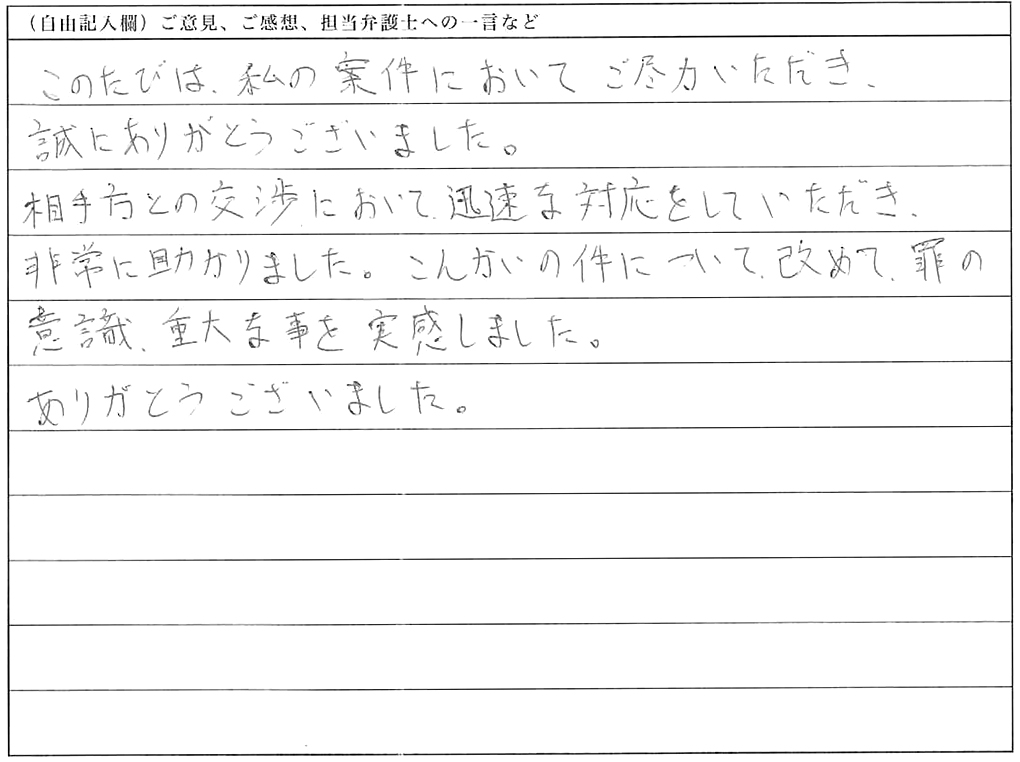 （自由記入欄）ご意見、ご感想、担当弁護士への一言など
このたびは、私の案件においてご尽力いただき、
誠にありがとうございました。
相手方との交渉において、迅速な対応をしていただき、
非常に助かりました。こんかいの件について、改めて、罪の
意識、重大な事を実感しました。
ありがとうございました。